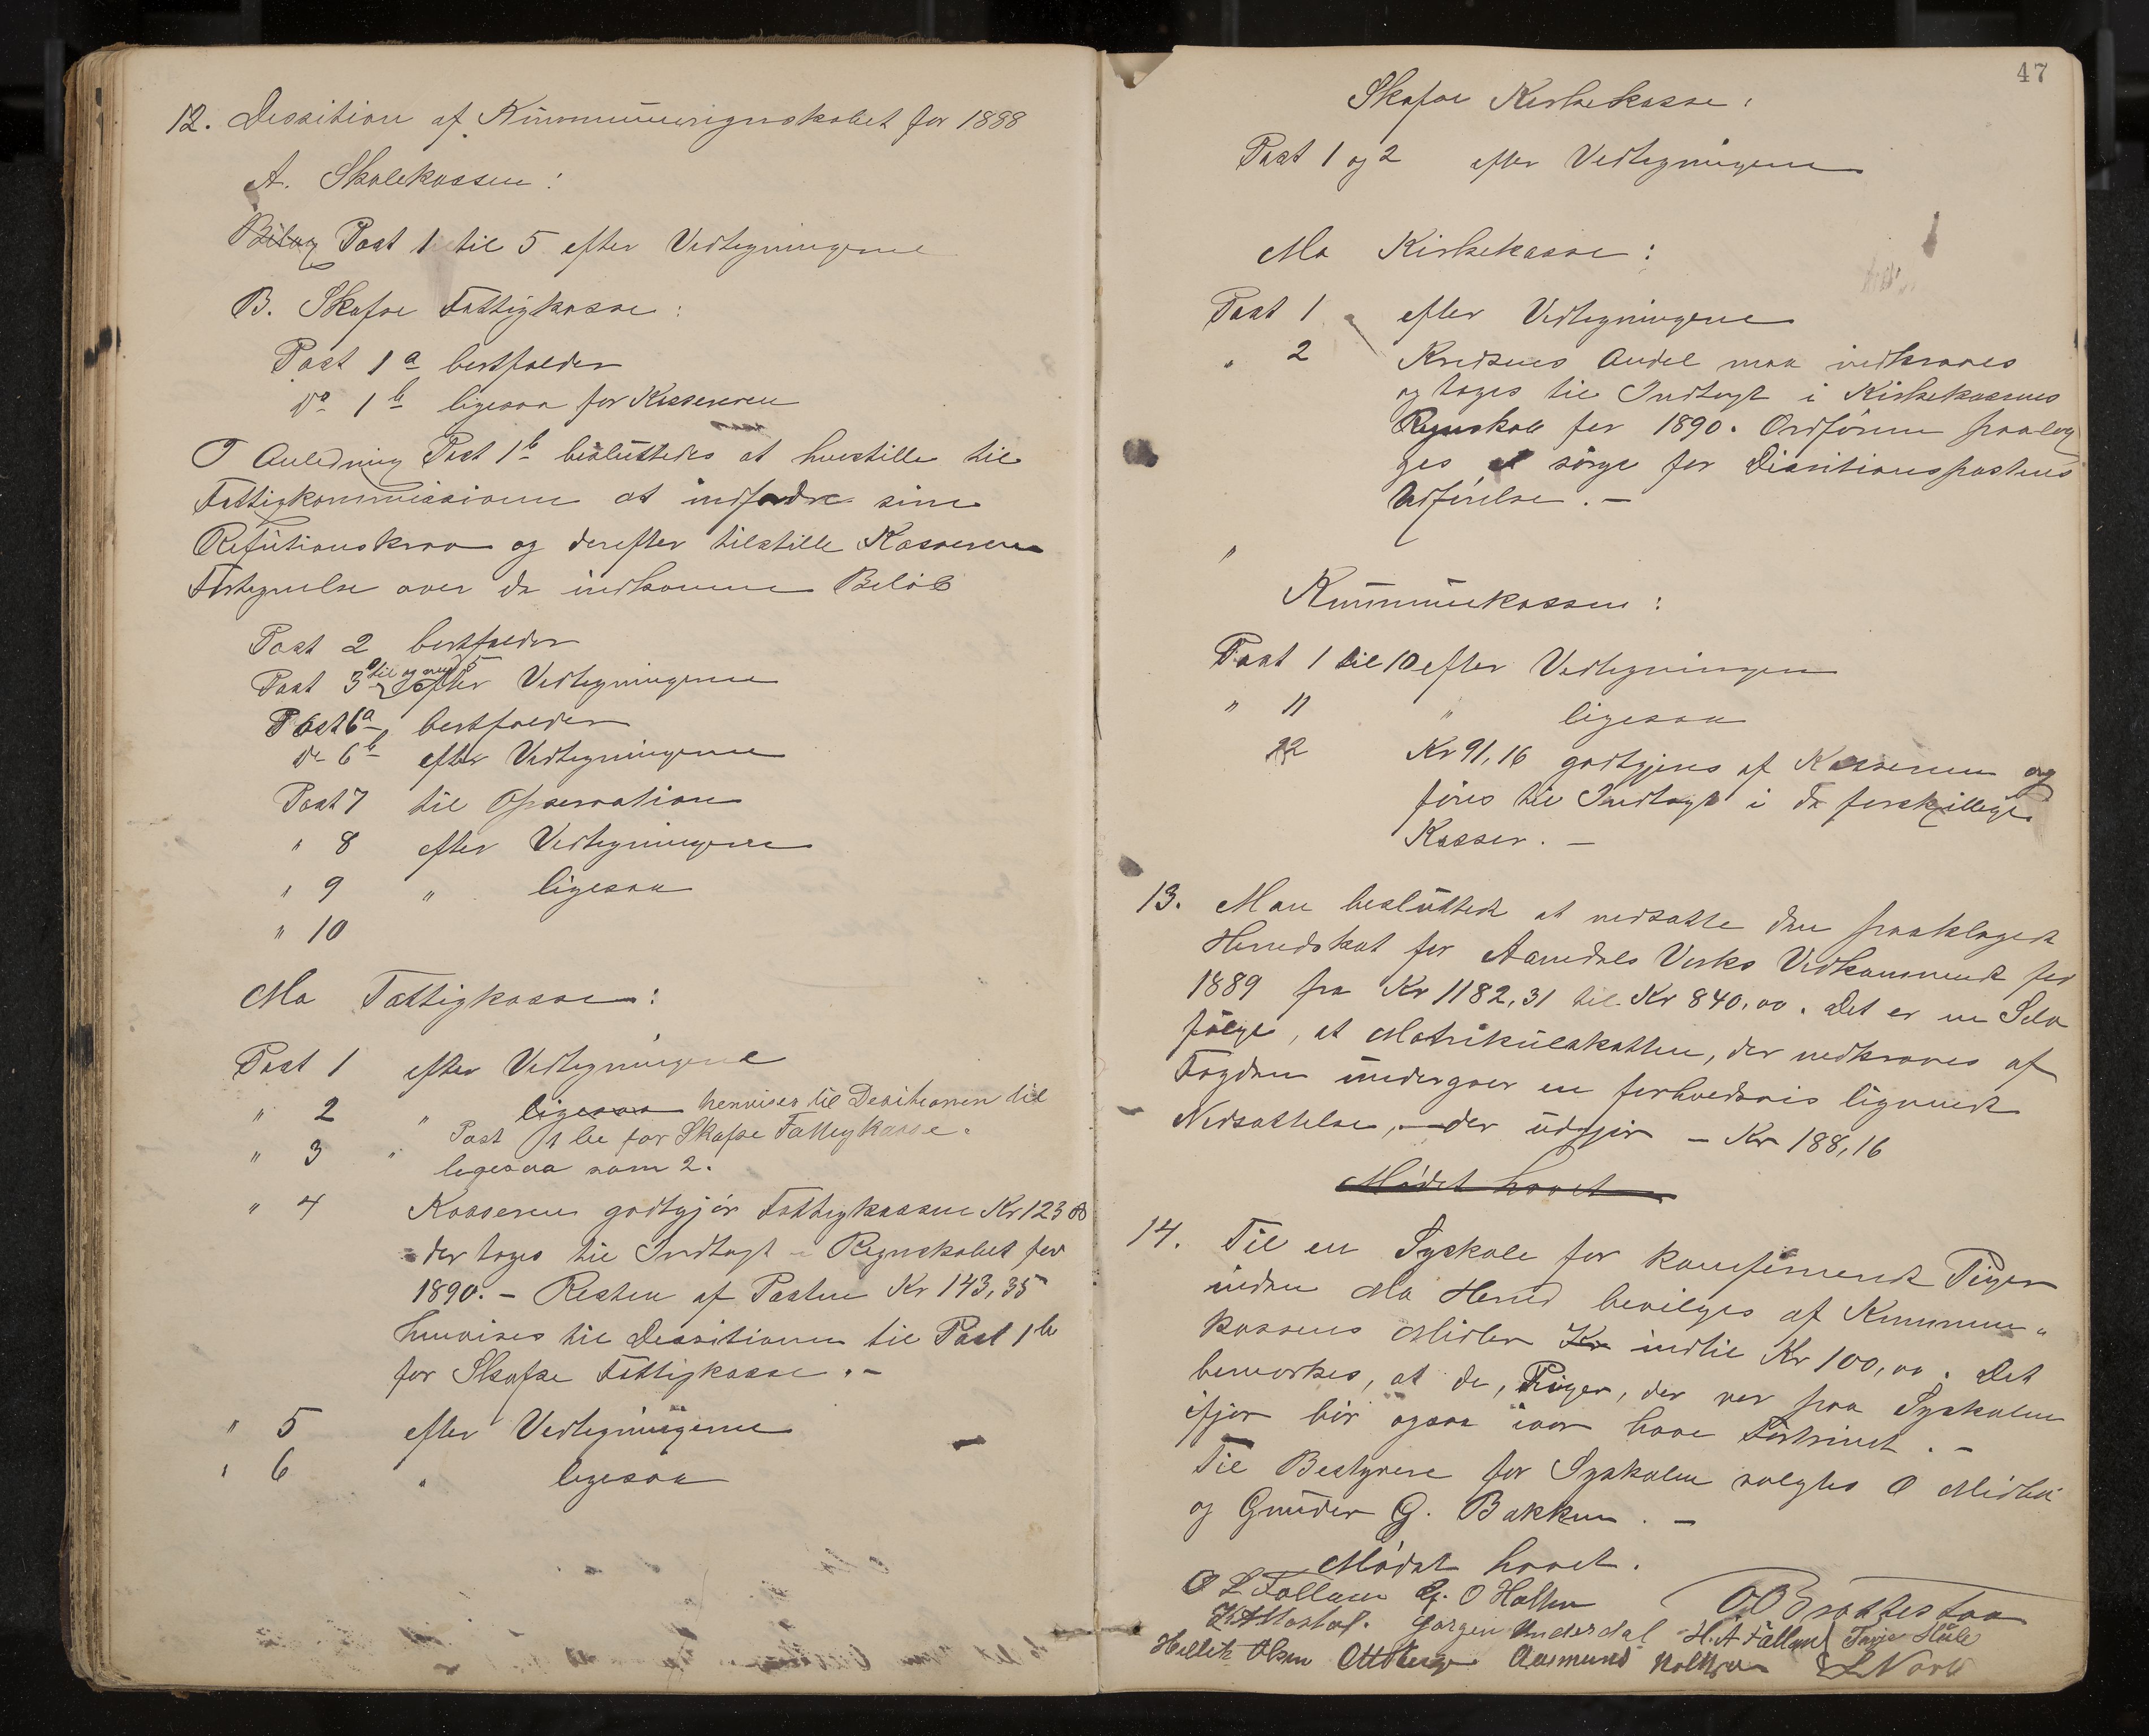 12. Dessition af Kommuneregnskabet for 1888
A. Skolekassen:
Bilag Post 1 til 5 efter Vedtegningerne
B. Skafse Fattigkasse:
Post 1a bortfalder
Do 1b ligesaa for Kassereren
I Anledning Post 1b besluttedes at henstille til
Fattigkommissionen at indfordre sine
Refutionskrav og derefter tilstille Kassereren
Fortegnelse over de indkomne Beløb
Post 2 bortfalder
Post 3 til og med 5 efter Vedtegningerne
Post 6a bortfalder
Do 6b efter Vedtegningerne
Post 7 til Opservation
" 8 efter Vedtegningerne
" 9 " ligesaa
" 10
Mo Fattigkasse:
Post 1 efter Vedtegningerne
" 2 " ligesaa henvises til Desitionen til
Post 1 b for Skafse Fattigkasse.
" 3 " ligesaa som 2.
" 4 Kassereren godtgjør Fattigkassen Kr 123
der tages til Indtægt i Regnskabet for
1890. – Resten af Posten Kr 143,35
henvises til Dessitionen til Post 1b
for Skafse Fattigkasse. –
" 5 efter Vedtegningerne
" 6 " ligesaa
47
Skafse Kirkekasse:
Post 1 og 2 efter Vedtegningerne
Mo Kirkekasse:
Post 1 efter Vedtegningerne
" 2 Kredsens Andel maa indkræves
og tages til Indtægt i Kirkekassens
Regnskab for 1890. Ordføreren paalæg
ges at sørge for Dissitionspostens
Udførelse. –
"
Kommunekassen:
Post 1 til 10 efter Vedtegningen
" 11 " ligesaa
12 Kr 91,16 godtgjøres af Kassereren og
føres til Indtægt i de forskjellige
Kasser. –
13. Man besluttede at nedsætte den paaklagede
Herredskat for Aamdals Verks Vedkommende for
1889 fra Kr 1182,31 til Kr 840,00. Det er en Selv
følge, at Matrikulskatten, der nedkræves af
Fogden undergaar en forholdsvis lignende
Nedsættelse, – der udgjør – Kr 188,16
Mødet hævet
14. Til en Syskole for konfirmerede Piger
inden Mo Herred bevilges af Kommune"
kassens Midler Kr indtil Kr 100,00. Det
bemærkes, at de, Piger, der var paa Syskolen
ifjor bør ogsaa iaar have Fortrinet. –
Til Bestyrere for Syskolen valgtes O Midbø
og Gunder G. Bakken. –
Mødet hævet.
O L Fallaen G. O Holten
Jørgen Underdal H. A Fallaen Tarje
Hellik Olsen Aasmund